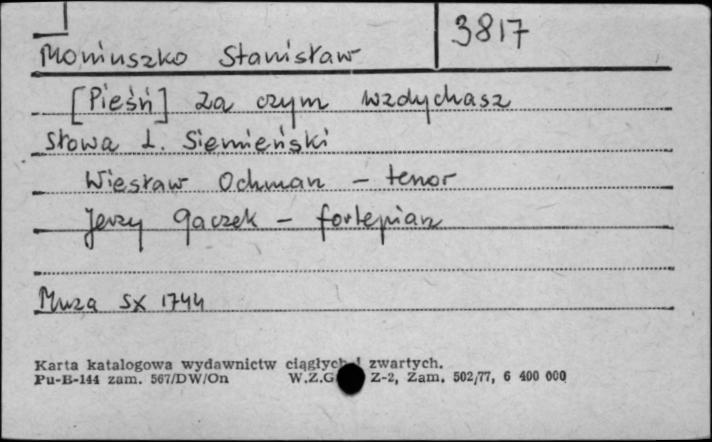 3817
Moniuszko Stanisław
[Pieśń] Za czym wzdychasz
słowa L. Siemieński
Wiesław Ochman - tenor
Jerzy Gaczek - fortepian
Muza SX 1744
Karta katalogowa wydawnictw ciągłych i zwartych.
Pu-B-144 zam. 567/DW/On W.Z.G Z-2, Zam. 502/77, 6 400 000